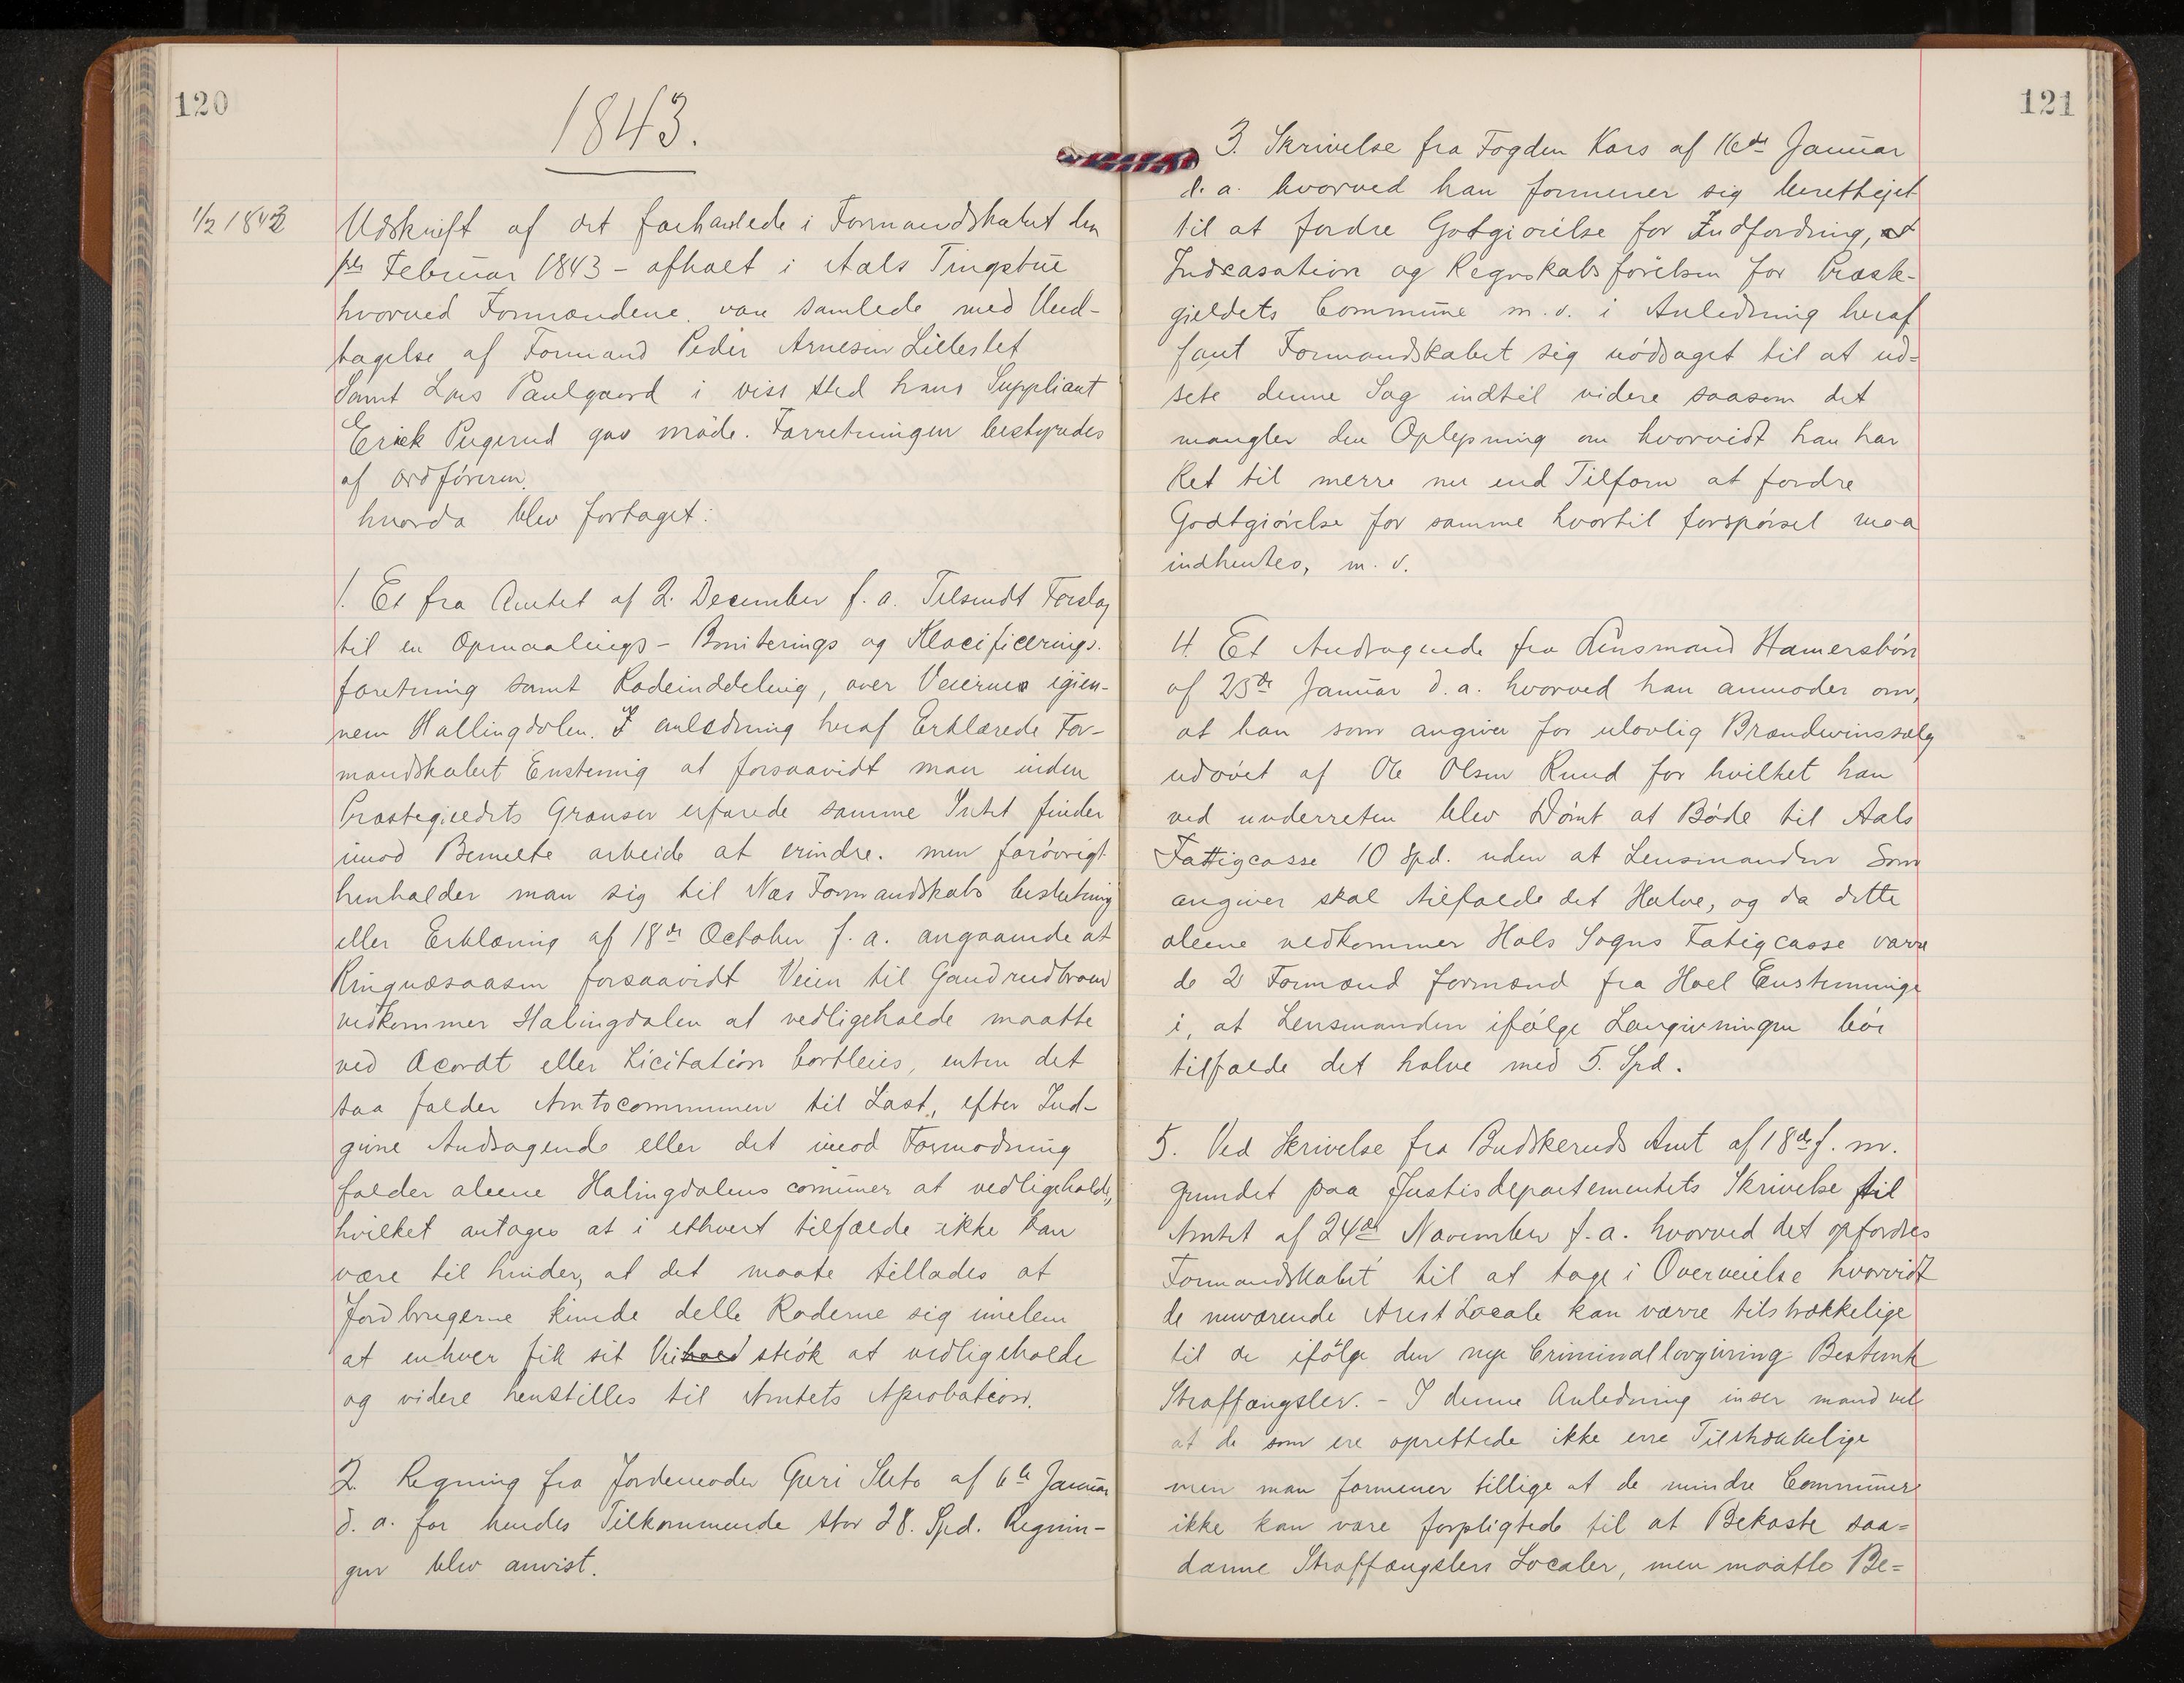 120
1843.
1/2 1843
Udskrift af det forhandlede i Formandskabet den
1ste Februar 1843 - afholt i Aals Tingstue
hvorved Formændene vare samlede med Und-
tagelse af Formand Peder Arnesen Lilleslet
Samt Lars Paulgaard i viss sted hans Suppliant
Erick Pugerud gav møde. Forretningen bestyredes
af Ordføreren.
hvorda blev fortaget:
1. Et fra Amtet af 2. December f. a. Tilsendt Forslag
til en Opmaalings- Boniterings og Klacificerings-
foretning samt Rodeinddeling, over Veiernes igien-
nem Hallingdalen. I anledning heraf Erklærede For-
mandskabet Enstemig at forsaavidt man inden
Præstegieldets Grænser erfarede samme Intet finder
imod Bemelte arbeide at erindre. men forøvrigt
henholder man sig til Næs Formandskabs beslutning
eller Erklæring af 18de October f. a. angaaende at
Ringnæsaasen forsaavidt Veien til Gandrudbroen
vedkommer Halingdalen at vedligeholde maatte
ved Acordt eller Licitation bortleies, enten det
saa falder Amtscommunen til Last, efter Ind-
givne Andragende eller det imod Formodning
falder aleene Halingdalens comuner at vedligeholde,
hvilket antages at i ethvert tilfælde ikke kan
være til hinder, at det maate tillades at
Jordbrugerne kunde delle Roderne sig imelem
at enhver fik sit Veihoed strøk at vedligeholde
og videre henstilles til Amtets Aprobation.
2. Regning fra Jordemoder Guri Sleto af 6te Januar
d. a. for hendes Tilkommende stor 28. Spd. Regnin-
gen blev anvist.
121
3. Skrivelse fra Fogden Kors af 16de Januar
d. a. hvorved han formener sig berettiget
til at fordre Gotgiørelse for Indfordring, at
Indcasation og Regnskabsførelsen for Præste-
gieldets Commune m. v. i Anledning heraf
fant Formandskabet sig nødsaget til at ud-
sete denne Sag indtil videre saasom det
mangler den Oplysning om hvorvidt han har
Ret til merre nu end Tilforn at fordre
Godtgiørelse for samme hvortil forspørsel maa
indhentes, m. v.
4. Et Andragende fra Lensmand Hamersbøn
af 25de Januar d. a. hvorved han anmoder om,
at han som angiver for ulovlig Brændevinssalg
udøvet af Ole Olsen Ruud for hvilket han
ved underreten blev Dømt at Bøde til Aals
Fattigcasse 10 Spd. uden at Lensmanden Som
angiver skal tilfalde det Halve, og da dette
aleene vedkommer Hols Sogns Fatigcasse varre
de 2 Formænd formænd fra Hoel Eenstemmige
i, at Lensmanden ifølge Lovgivningen bør
tilfalde det halve med 5. Spd.
5. Ved Skrivelse fra Budskeruds Amt af 18de f. m.
grundet paa Justisdepartementets Skrivelse til
Amtet af 24de November f. a. hvorved det opfordres
Formandskabet til at tage i Overveielse hvorvidt
de nuværende Arest Locale kan værre tilstrækkelige
til de ifølge den nye Criminallovgivning Bestemte
Straffængsler. - I denne Anledning inser mand vel
at de som ere oprettede ikke erre Tilstrækkelige
men man formener tillige at de mindre Communer
ikke kan være forpligtede til at Bekoste saa-
danne Straffængslers Localer, men maatte Be-